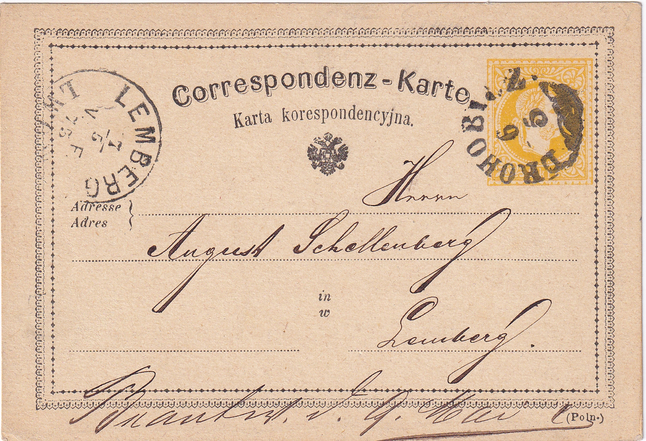 Correspondenz-Karte
Karta korespondencyjna.
LEMBERG
DROHOBICZ
Herrn
Adresse
Adres
August Schellenberg
in
w
Lemberg.
(Poln.)